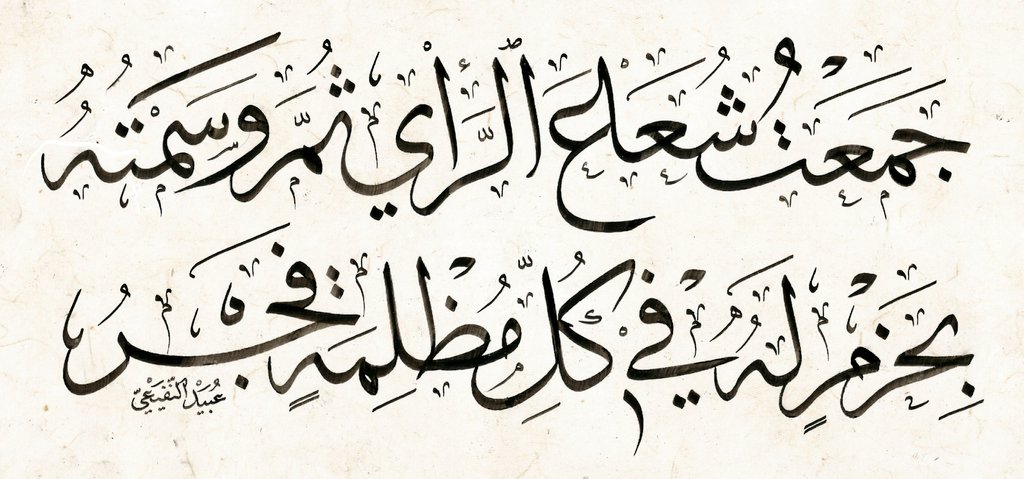 جَمَعْتَ شُعَاعَ الرَّأْيِ ثُمَّ وَسَمْتَهُ
بِحَزْمٍ لَهُ فِي كُلِّ مُظْلِمَةٍ فَجْرُ
عُبَيْد النُّفَيْعِيّ